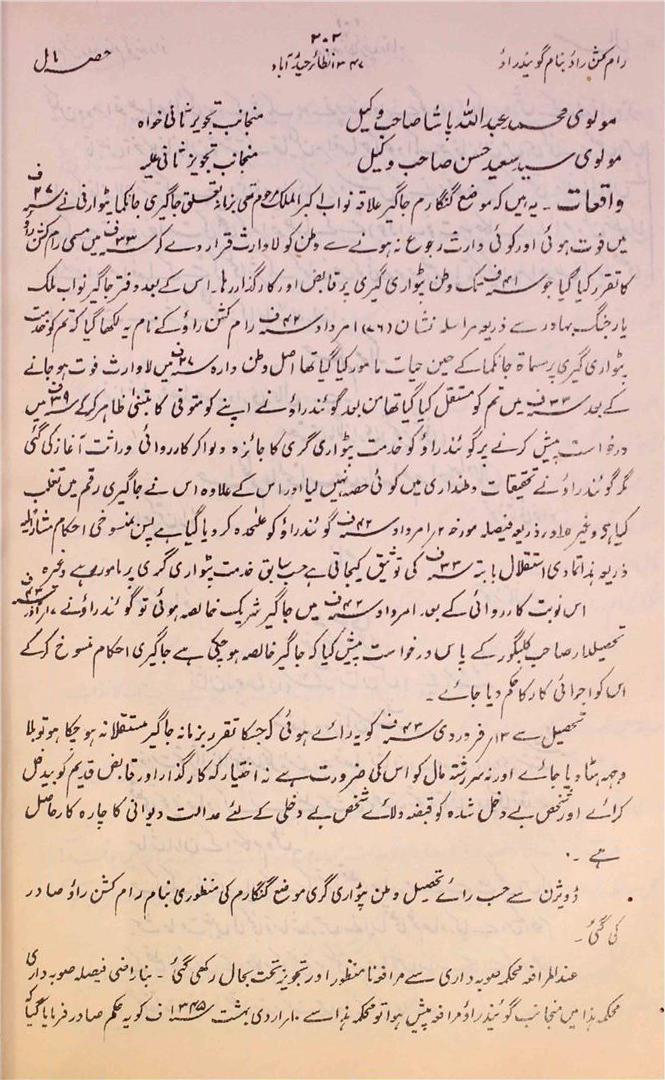 ۲۰۲
رام کشن راؤ بنام گوئیندراؤ ۱۳۴۷ نظائر حیدرآباد حصہ مال
مولوی محمد عبداللہ پاشا صاحب وکیل منجانب تجویز ثانی خواہ
مولوی سید سعید حسن صاحب وکیل منجانب تجویز ثانی علیہ
واقعات ۔ یہ ہیں کہ موضع گنگارم جاگیر علاقہ نواب اکبر الملک مرحوم تھی بزمانہ تعلق جاگیری جانکما پٹوارنی نے ۲۷ ف
میں فوت ہوئی اور کوئی وارث رجوع نہ ہونے سے وطن کو لا وارث قرار دے کر ۳۳ ف میں مسمی رام کشن راؤ
کا تقرر کیا گیا جو ۴۱ ف تک وطن پٹواری گیری پر قابض اور کارگذار رہا۔ اس کے بعد دفتر جاگیر نواب ملک
یار جنگ بہادر سے ذریعہ مراسلہ نشان (۷۶) امرداد ۴۲ ف رام کشن راؤ کے نام یہ لکھا گیا کہ تم کو خدمت
پٹواری گیری پر مسماۃ جانکما کے حین حیات مامور کیا گیا تھا اصل وطن دارہ ۲۷ ف میں لا وارث فوت ہو جانے
کے بعد ۳۳ ف میں تم کو مستقل کیا گیا تھا من بعد گوئندراؤ نے اپنے کو متوفی کا متبنیٰ ظاہر کر کے ۳۹ ف میں
درخواست پیش کرنے پر گوئندراؤ کو خدمت پٹواری گری کا جائزہ دلوا کر کارروائی وراثت آغاز کی گئی
مگر گوئندراؤ نے تحقیقات وطنداری میں کوئی حصہ نہیں لیا اور اس کے علاوہ اس نے جاگیری رقم میں تغلب
کیا ہے وغیرہ اور ذریعہ فیصلہ مورخہ ۲ امرداد ۴۲ ف گوئندراؤ کو علٰحدہ کر دیا گیا ہے پس بمنسوخی احکام
ذریعہ ہذا تمادی استقلال بابتہ ۳۳ ف کی توثیق کیجاتی ہے حسب سابق خدمت پٹواری گری پر مامور رہے وغیرہ
اس نوبت کارروائی کے بعد امرداد ۴۲ ف میں جاگیر شریک خالصہ ہوئی تو گوئندراؤ نے ۴۳ ف
تحصیلدار صاحب کلبگور کے پاس درخواست پیش کیا کہ جاگیر خالصہ ہو چکی ہے جاگیری احکام منسوخ کر کے
اس کو اجرائی کار کا حکم دیا جائے ۔
تحصیل سے ۱۳ فروردی ۴۳ ف کو یہ رائے ہوئی کہ جسکا تقرر بزمانہ جاگیر مستقلانہ ہو چکا ہو تو بلا
وجہ ہٹا دیا جائے اور نہ سررشتہ مال کو اس کی ضرورت ہے نہ اختیار کہ کارگذار اور قابض قدیم کو بیدخل
کرائے اور شخص بے دخل شدہ کو قبضہ دلائے شخص بے دخلی کے لئے عدالت دیوانی کا چارہ کار حاصل
ہے ۔
ڈویژن سے حسب رائے تحصیل وطن پٹواری گری موضع گنگارم کی منظوری بنام رام کشن راؤ صادر
کی گئی ۔
عندالمرافعہ محکمہ صوبہ داری سے مرافعہ نامنظور اور تجویز تحت بحال رکھی گئی ۔ بناراضی فیصلہ صوبہ داری
محکمہ ہذا میں منجانب گوئیندراؤ مرافعہ پیش ہوا تو محکمہ ہذا سے ۱۰ اردی بہشت ۱۳۴۵ ف کو یہ حکم صادر فرمایا گیا کہ